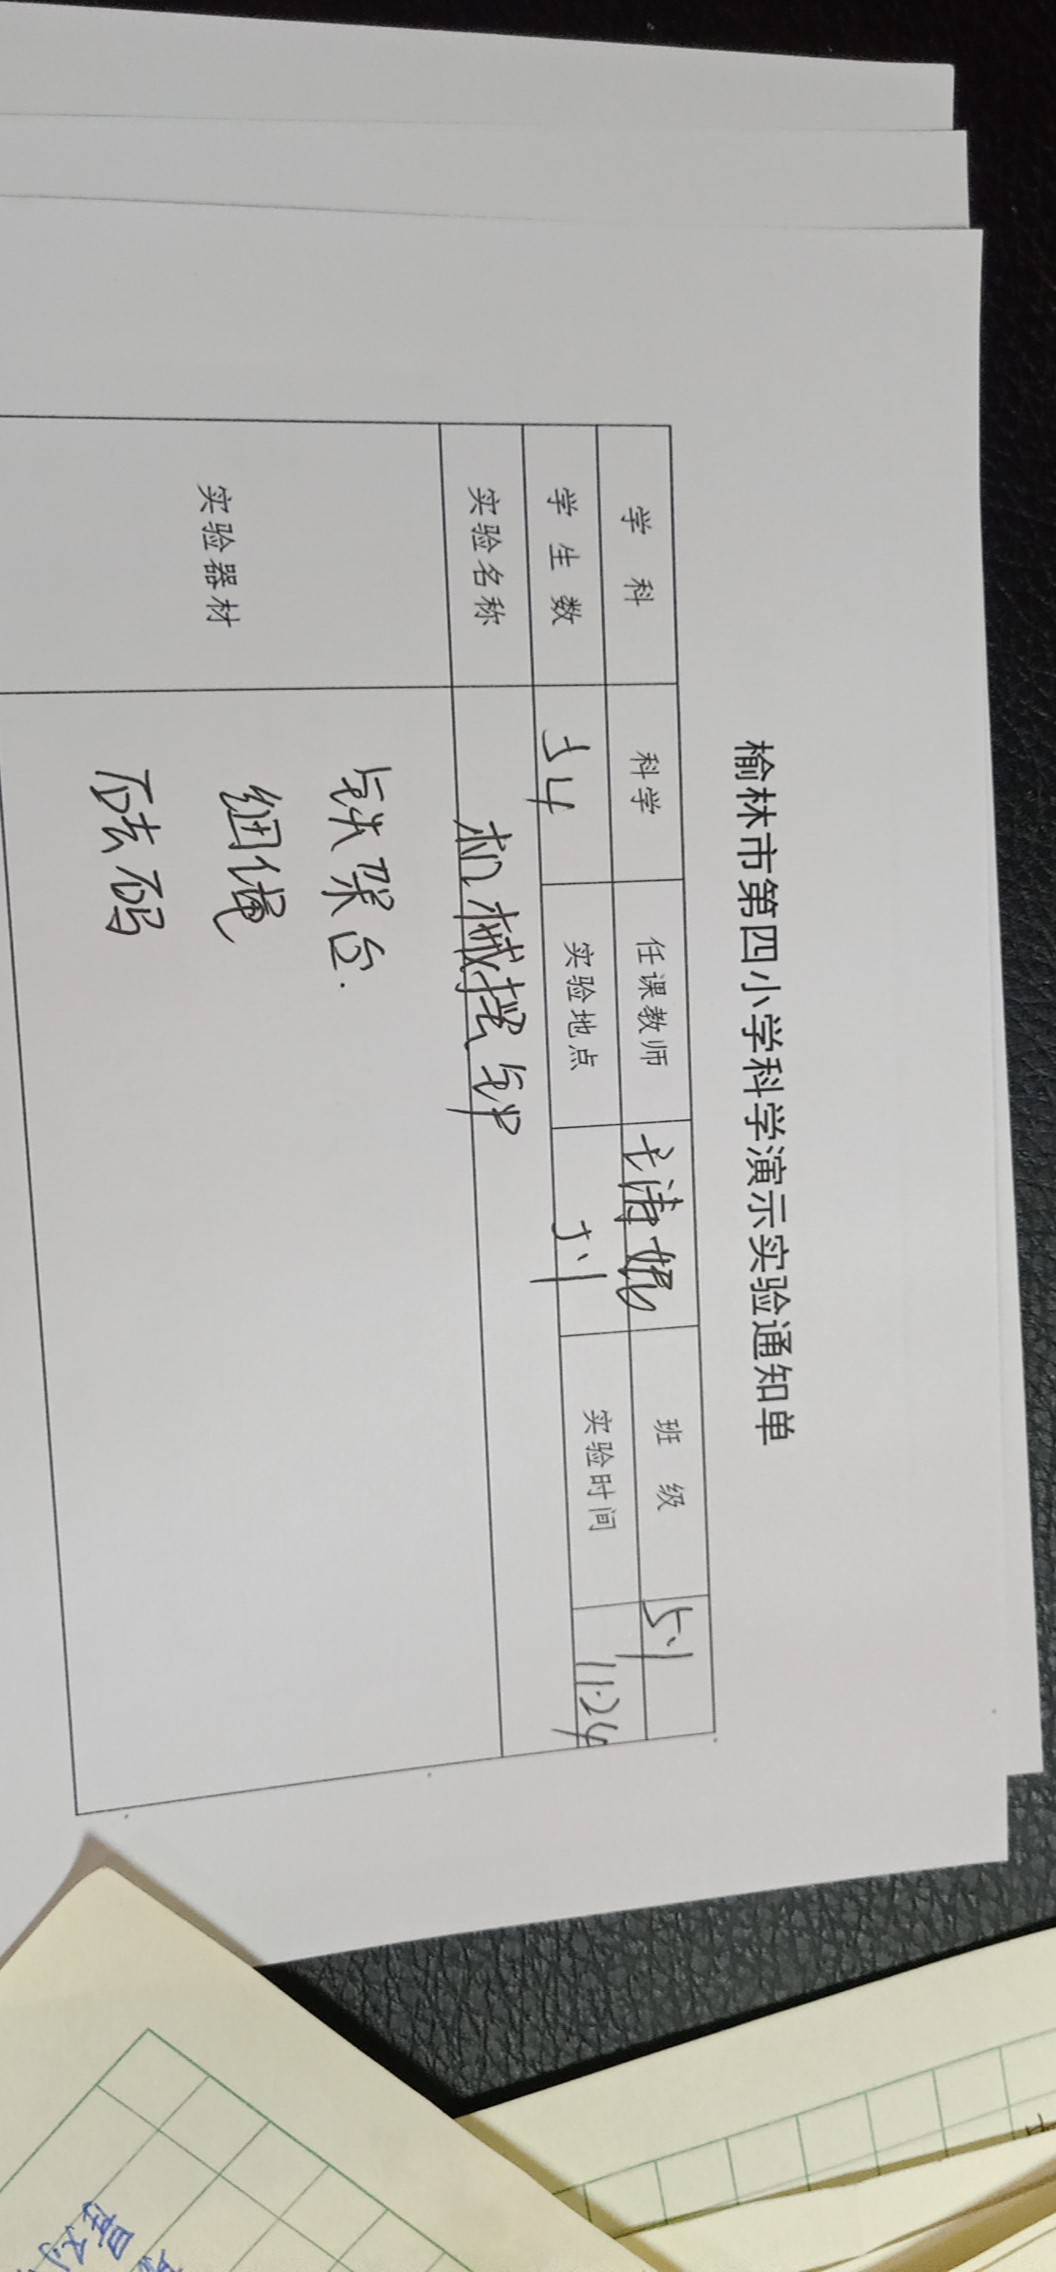 榆林市第四小学科学演示实验通知单
学科 科学 任课教师 班级 5.1
学生数 54 实验地点 5.1 实验时间 11.24
实验名称 机械摆钟
实验器材 铁架台.
细绳
砝码